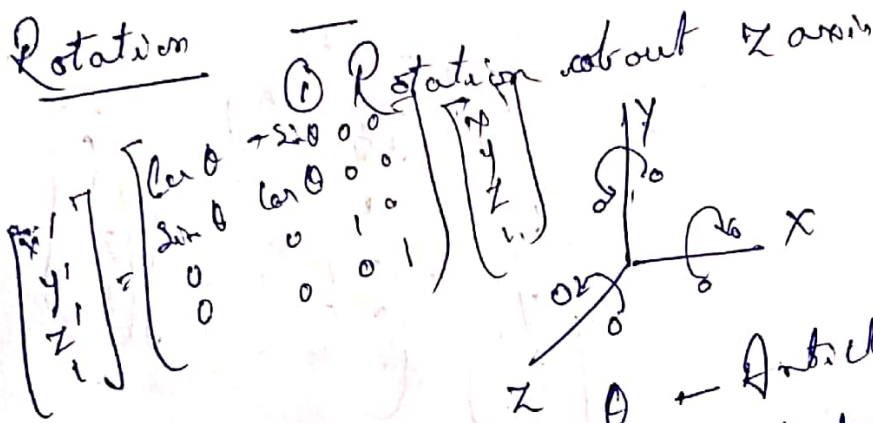 Rotation
① Rotation about Z axis
[x' y' z' 1] = [Cos θ -Sin θ 0 0
Sin θ Cos θ 0 0
0 0 1 0
0 0 0 1] [x y z 1]
Y
X
Z
θ ←